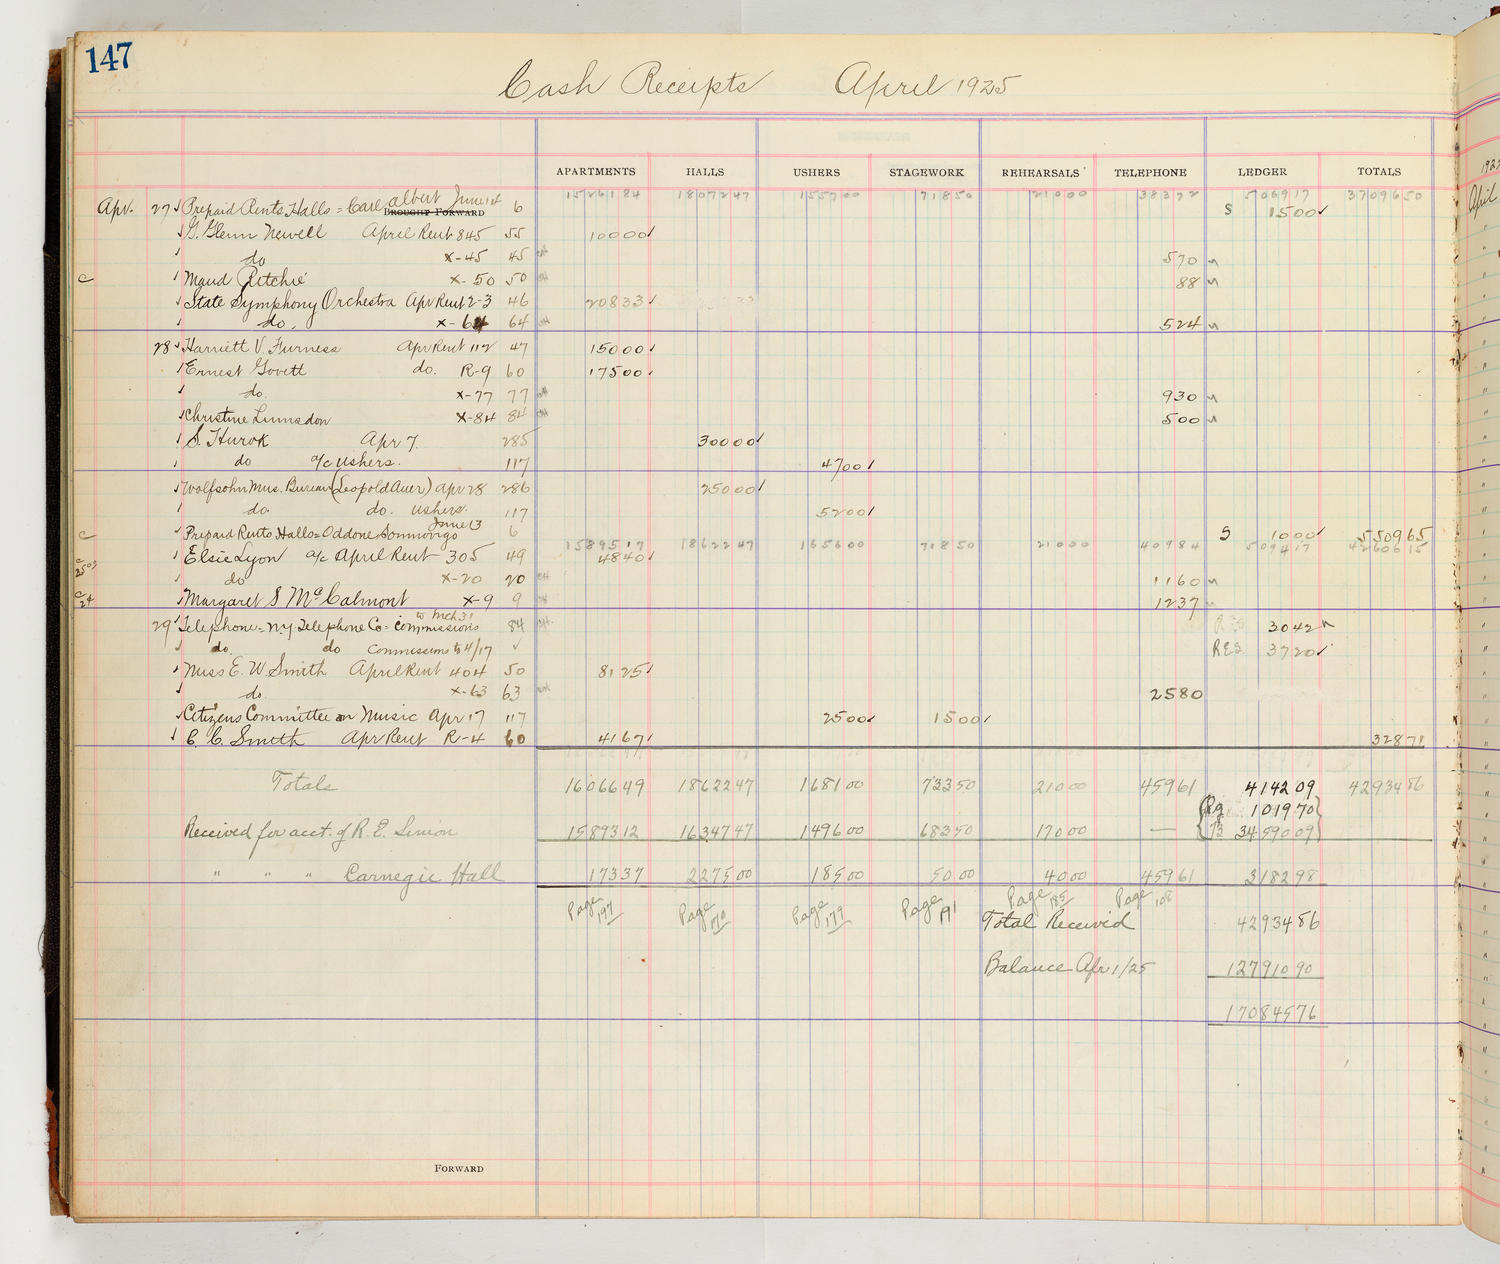 147
Cash Receipts April 1925
APARTMENTS HALLS USHERS STAGEWORK REHEARSALS TELEPHONE LEDGER TOTALS
1526184 1807247 155700 71850 21000 38372 506917 3709650
Apr. 27 Prepaid Rents Halls = Carl Albert June 14 6 S 1500
BROUGHT FORWARD
G. Glenn Newell April Rent 845 55 10000
do X-45 45 570
c Maud Ritchie X-50 50 88
State Symphony Orchestra Apr Rent 2-3 46 20833
do. X-64 64 524
28 Harriett V. Furness Apr Rent 112 47 15000
Ernest Govett do. R-9 60 17500
do. X-77 77 930
Christine Lumsdon X-84 84 500
S. Hurok Apr 7. 285 30000
do a/c ushers. 117 4700
Wolfsohn Mus. Bureau (Leopold Auer) Apr 28 286 25000
do. do. ushers. 117 5200
c Prepaid Rents Halls = Oddone Sommovigo June 13 6 S 1000 550965
1589517 1862247 165600 71850 21000 40984 509417 4260615
Elsie Lyon a/c April Rent 305 49 4840
do X-20 20 1160
Margaret S McCalmont X-9 9 1237
29 Telephone = N.Y. Telephone Co = Commissions to Mch 31 84 3042
do. do Commissions to 4/17 RES. 3720
Miss E. W. Smith April Rent 404 50 8125
do. X-63 63 2580
Citizens Committee on Music Apr 17 117 2500 1500
C. C. Smith Apr Rent R-4 60 4167 32871
Totals 1606649 1862247 168100 73350 21000 45961 414209 4293486
Rg 101970
Received for acct. of R. E. Simon 1589312 1634747 149600 68350 17000 — B 3459009
" " " Carnegie Hall 17337 227500 18500 5000 4000 45961 318298
Page 197 Page 170 Page 179 Page 191 Page 185 Page 108
Total Received 4293486
Balance Apr 1/25 12791090
17084576
FORWARD